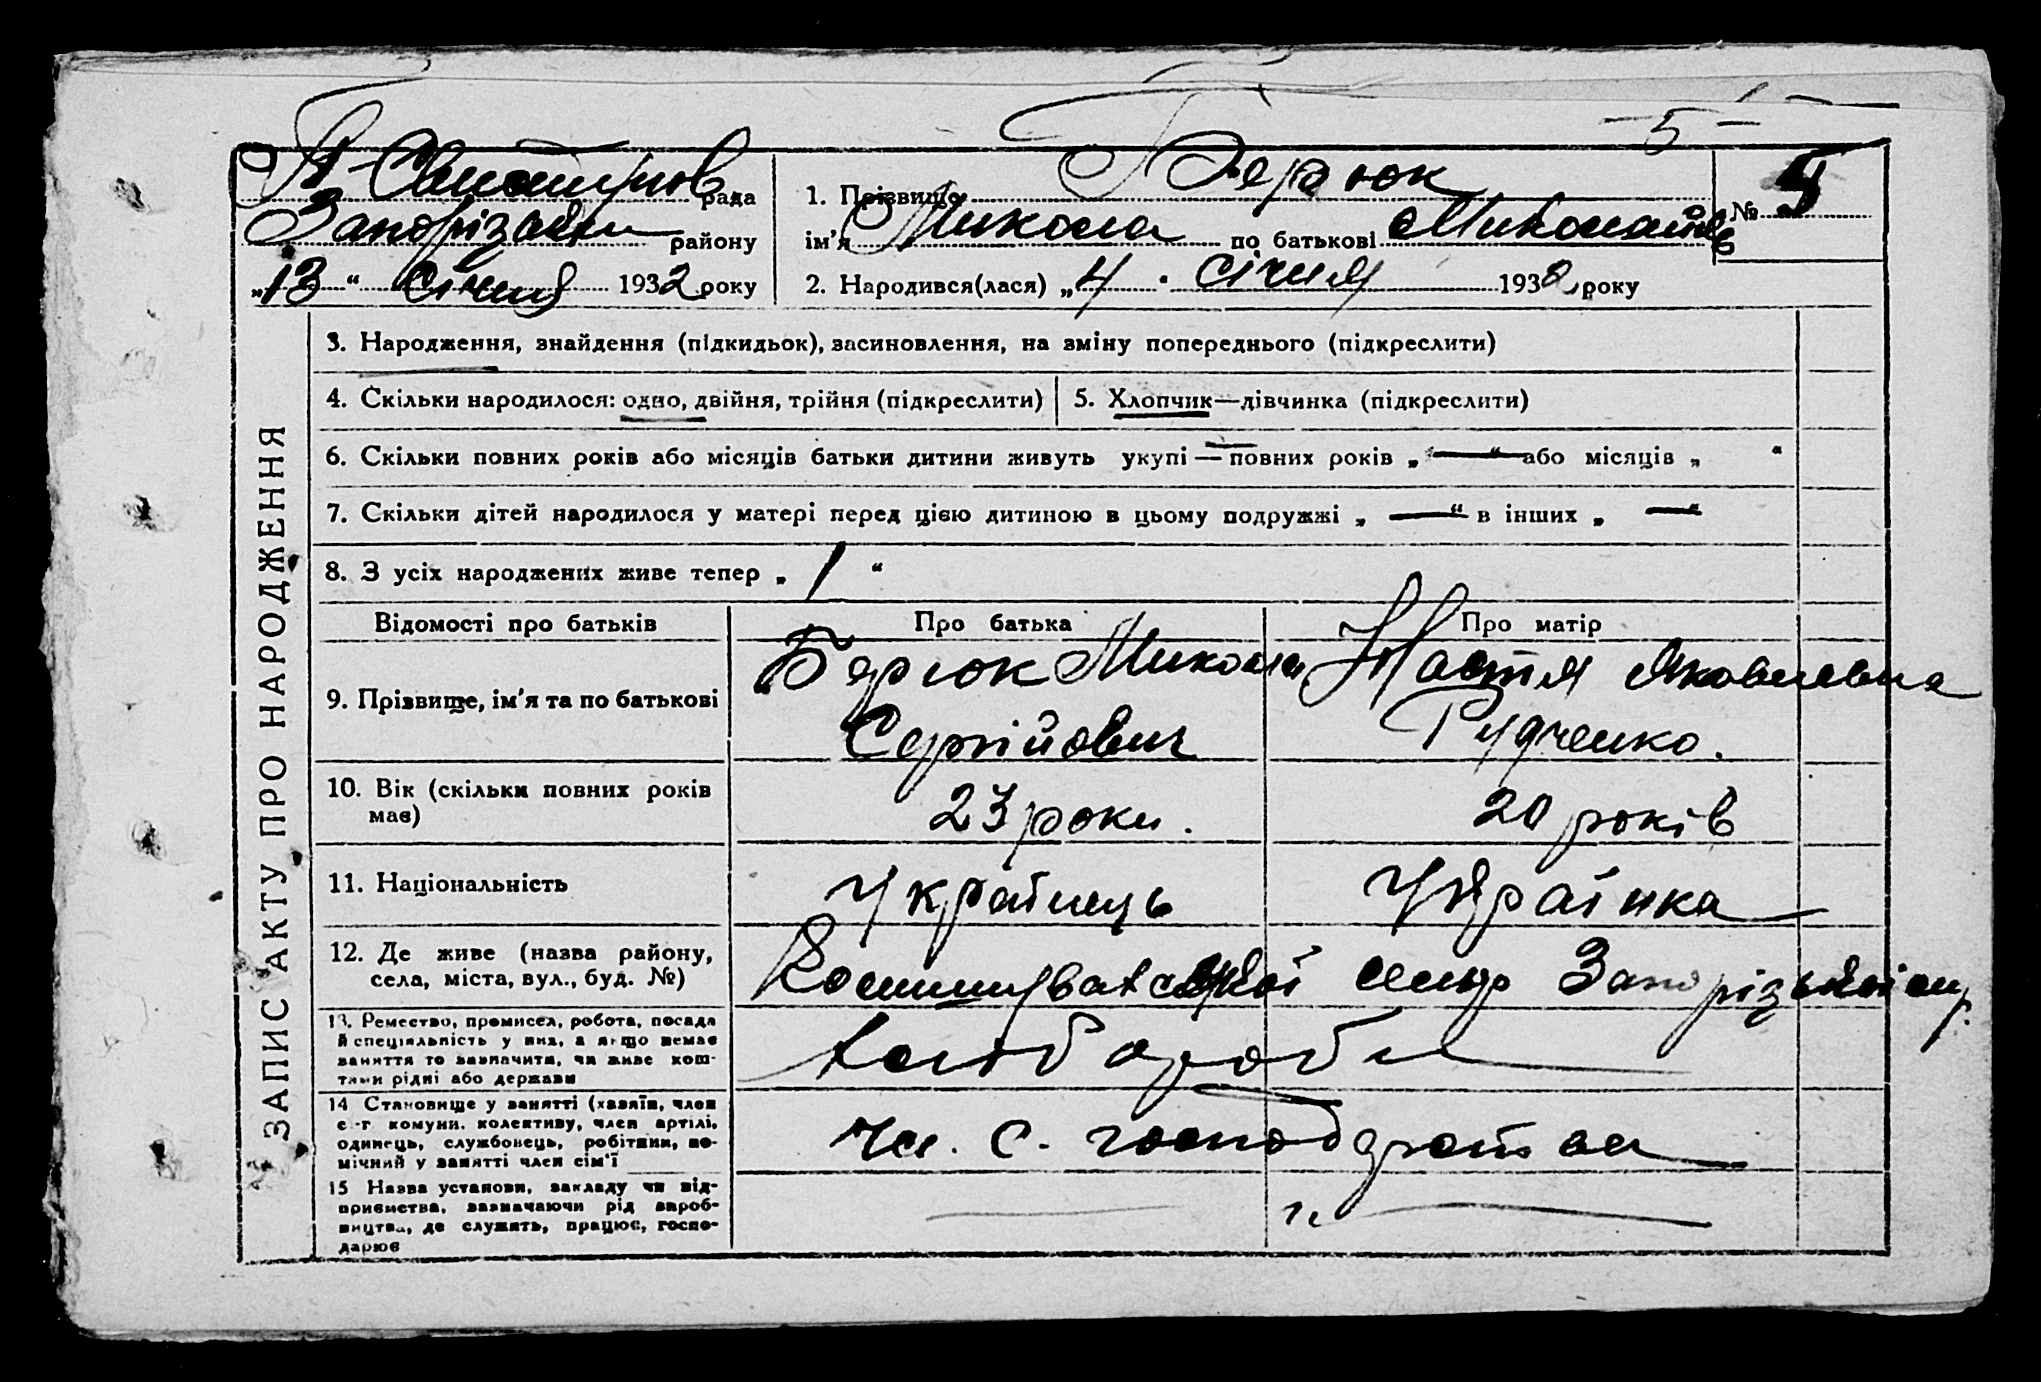 — 5 —
рада
Запорізька району
„13“ Січня 1932 року
1. Прізвище Берюк
ім’я Микола по батькові Миколаїв
№ 5
2. Народився(лася) „4“ Січня 1932 року
ЗАПИС АКТУ ПРО НАРОДЖЕННЯ
3. Народження, знайдення (підкидьок), засиновлення, на зміну попереднього (підкреслити)
4. Скільки народилося: одно, двійня, трійня (підкреслити)
5. Хлопчик—дівчинка (підкреслити)
6. Скільки повних років або місяців батьки дитини живуть укупі — повних років „—“ або місяців „ “
7. Скільки дітей народилося у матері перед цією дитиною в цьому подружжі „—“ в інших „—“
8. З усіх народжених живе тепер „1“
Відомості про батьків
Про батька
Про матір
9. Прізвище, ім’я та по батькові
Берюк Микола
Сергійович
Настя Яковлевна
Рудченко.
10. Вік (скільки повних років
має)
23 роки.
20 років
11. Національність
Українець
Українка
12. Де живе (назва району,
села, міста, вул., буд. №)
сільр Запорізької
13. Ремество, промисел, робота, посада
й спеціяльність у них, а якщо немає
заняття то зазначити, чи живе кош-
тами рідні або держави
хліборобы
14 Становище у занятті (хазяїн, член
с.-г комуни, колективу, член артілі,
одинець, службовець, робітник, по-
мічний у занятті член сім’ї
чл. с. господарства
15 Назва установи, закладу чи під-
приємства, зазначаючи рід вироб-
ництва, де служить, працює, госпо-
дарює